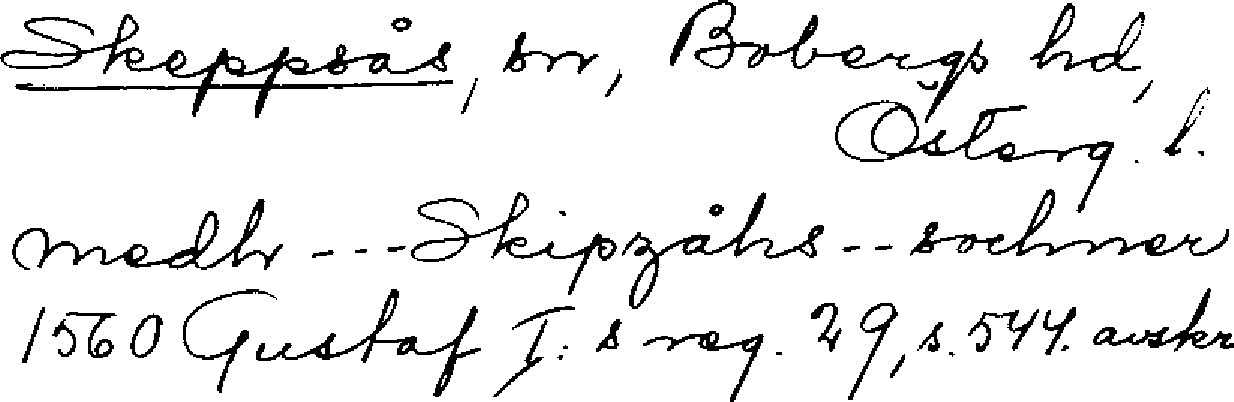 Skeppsås, sn, Bobergs hd,
Österg. l.
medh --- Skipzåhs -- sochner
1560 Gustaf I:s reg. 29, s. 544. avskr